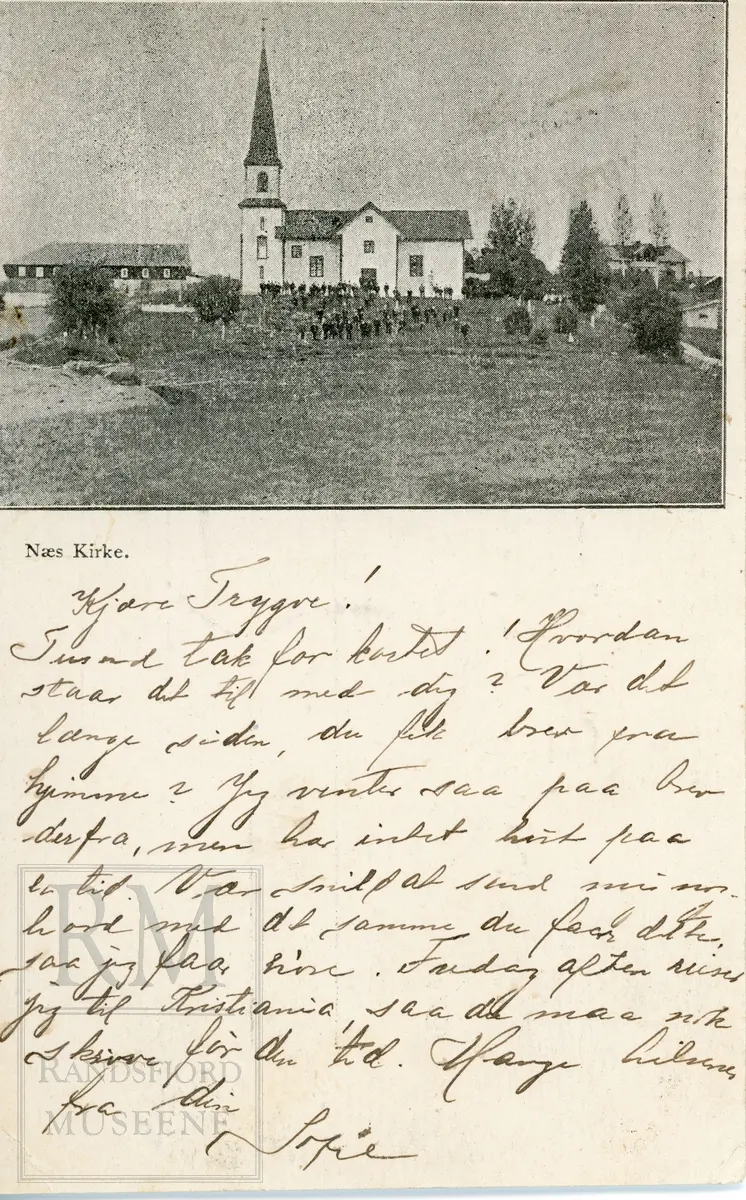 Næs Kirke.
Kjære Trygve!
Tusend tak for kortet! Hvordan
staar det til med dig? Var det
længe siden, du fik brev fra
hjemme? Jeg venter saa paa brev
derfra, men har intet hørt paa
en tid. Vær snild at send mig
ord med det samme du faar dette,
saa jeg faar høre. Fredag aften reiser
jeg til Kristiania, saa du maa nok
skrive før den tid. Mange hilsener
fra din
Sofie
RM
RANDSFJORD
MUSEENE